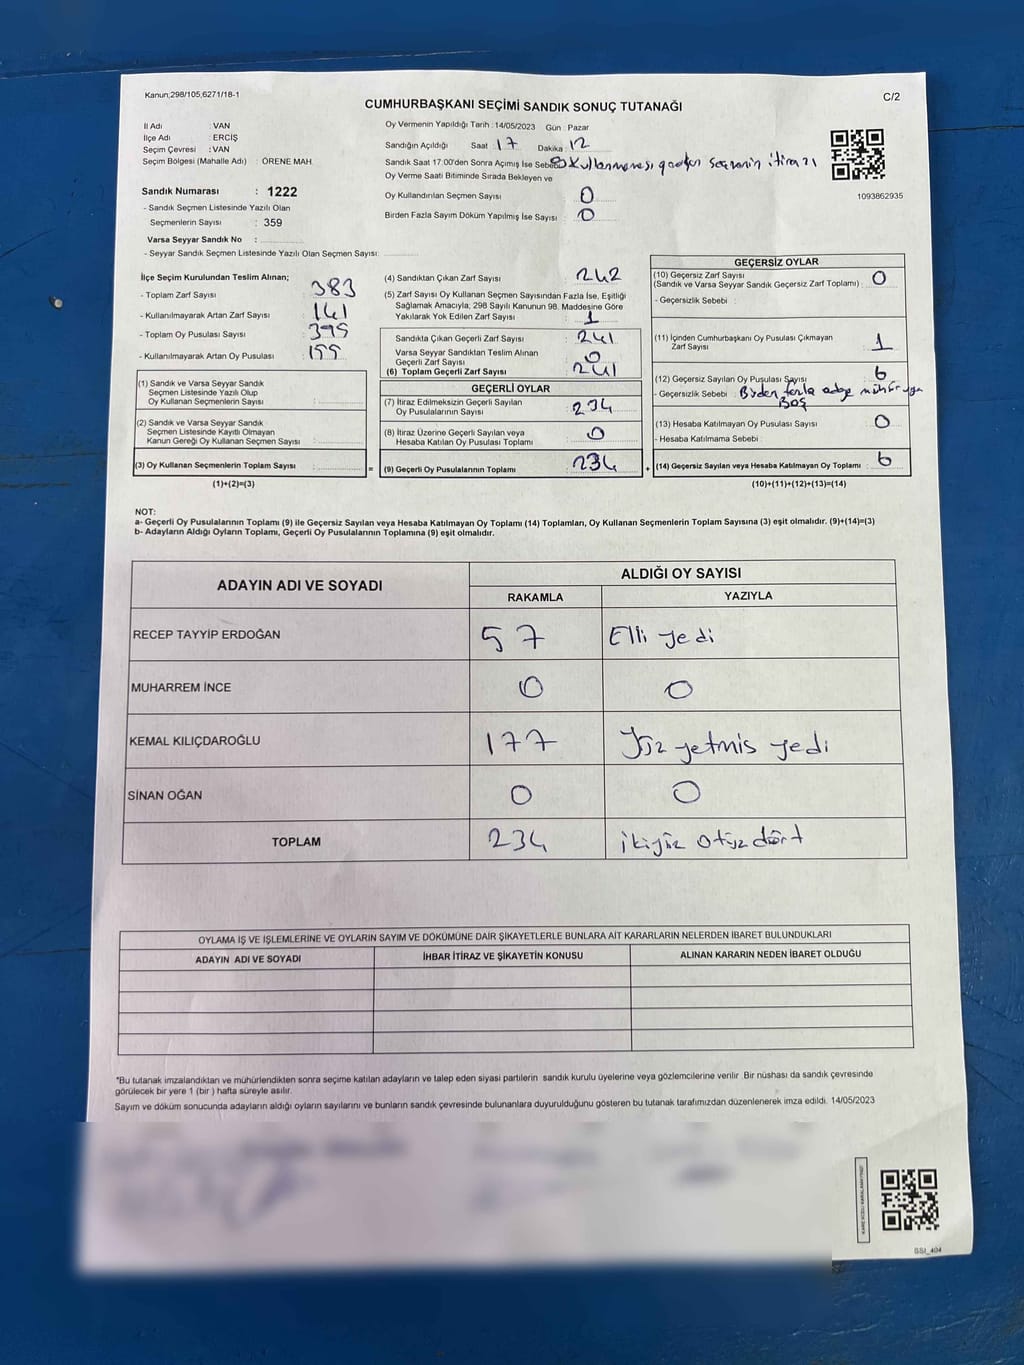 Kanun;298/105,6271/18-1
CUMHURBAŞKANI SEÇİMİ SANDIK SONUÇ TUTANAĞI
C/2
İl Adı : VAN
İlçe Adı : ERCİŞ
Seçim Çevresi : VAN
Seçim Bölgesi (Mahalle Adı) : ÖRENE MAH.
Oy Vermenin Yapıldığı Tarih : 14/05/2023 Gün : Pazar
Sandığın Açıldığı Saat 17 Dakika 12
Sandık Saat 17:00'den Sonra Açımış İse Sebebi Kullanmamış seçmenin itirazı
Oy Verme Saati Bitiminde Sırada Bekleyen ve
Oy Kullandırılan Seçmen Sayısı 0
Birden Fazla Sayım Döküm Yapılmış İse Sayısı 0
1093862935
Sandık Numarası : 1222
- Sandık Seçmen Listesinde Yazılı Olan
Seçmenlerin Sayısı : 359
Varsa Seyyar Sandık No :
- Seyyar Sandık Seçmen Listesinde Yazılı Olan Seçmen Sayısı:
İlçe Seçim Kurulundan Teslim Alınan;
- Toplam Zarf Sayısı : 383
- Kullanılmayarak Artan Zarf Sayısı : 141
- Toplam Oy Pusulası Sayısı : 399
- Kullanılmayarak Artan Oy Pusulası : 199
(1) Sandık ve Varsa Seyyar Sandık
Seçmen Listesinde Yazılı Olup
Oy Kullanan Seçmenlerin Sayısı :
(2) Sandık ve Varsa Seyyar Sandık
Seçmen Listesinde Kayıtlı Olmayan
Kanun Gereği Oy Kullanan Seçmen Sayısı :
(3) Oy Kullanan Seçmenlerin Toplam Sayısı : =
(1)+(2)=(3)
(4) Sandıktan Çıkan Zarf Sayısı : 242
(5) Zarf Sayısı Oy Kullanan Seçmen Sayısından Fazla İse, Eşitliği
Sağlamak Amacıyla, 298 Sayılı Kanunun 98. Maddesine Göre
Yakılarak Yok Edilen Zarf Sayısı : 1
Sandıkta Çıkan Geçerli Zarf Sayısı : 241
Varsa Seyyar Sandıktan Teslim Alınan
Geçerli Zarf Sayısı : 0
(6) Toplam Geçerli Zarf Sayısı : 241
GEÇERLİ OYLAR
(7) İtiraz Edilmeksizin Geçerli Sayılan
Oy Pusulalarının Sayısı : 234
(8) İtiraz Üzerine Geçerli Sayılan veya
Hesaba Katılan Oy Pusulası Toplamı : 0
(9) Geçerli Oy Pusulalarının Toplamı : 234 +
GEÇERSİZ OYLAR
(10) Geçersiz Zarf Sayısı
(Sandık ve Varsa Seyyar Sandık Geçersiz Zarf Toplamı) : 0
- Geçersizlik Sebebi :
(11) İçinden Cumhurbaşkanı Oy Pusulası Çıkmayan
Zarf Sayısı : 1
(12) Geçersiz Sayılan Oy Pusulası Sayısı : 6
- Geçersizlik Sebebi : Birden fazla adaya mühür
Boş
(13) Hesaba Katılmayan Oy Pusulası Sayısı : 0
- Hesaba Katılmama Sebebi :
(14) Geçersiz Sayılan veya Hesaba Katılmayan Oy Toplamı : 6
(10)+(11)+(12)+(13)=(14)
NOT:
a- Geçerli Oy Pusulalarının Toplamı (9) ile Geçersiz Sayılan veya Hesaba Katılmayan Oy Toplamı (14) Toplamları, Oy Kullanan Seçmenlerin Toplam Sayısına (3) eşit olmalıdır. (9)+(14)=(3)
b- Adayların Aldığı Oyların Toplamı, Geçerli Oy Pusulalarının Toplamına (9) eşit olmalıdır.
ADAYIN ADI VE SOYADI
ALDIĞI OY SAYISI
RAKAMLA YAZIYLA
RECEP TAYYİP ERDOĞAN 57 Elli yedi
MUHARREM İNCE 0 0
KEMAL KILIÇDAROĞLU 177 Yüz yetmis yedi
SİNAN OĞAN 0 0
TOPLAM 234 ikiyüz otüz dört
OYLAMA İŞ VE İŞLEMLERİNE VE OYLARIN SAYIM VE DÖKÜMÜNE DAİR ŞİKAYETLERLE BUNLARA AİT KARARLARIN NELERDEN İBARET BULUNDUKLARI
ADAYIN ADI VE SOYADI İHBAR İTİRAZ VE ŞİKAYETİN KONUSU ALINAN KARARIN NEDEN İBARET OLDUĞU
*Bu tutanak imzalandıktan ve mühürlendikten sonra seçime katılan adayların ve talep eden siyasi partilerin sandık kurulu üyelerine veya gözlemcilerine verilir .Bir nüshası da sandık çevresinde
görülecek bir yere 1 (bir ) hafta süreyle asılır.
Sayım ve döküm sonucunda adayların aldığı oyların sayılarını ve bunların sandık çevresinde bulunanlara duyurulduğunu gösteren bu tutanak tarafımızdan düzenlenerek imza edildi. 14/05/2023
SSI_404